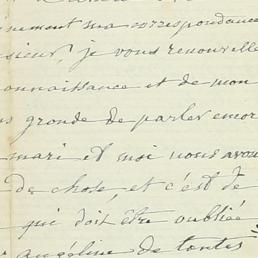 nement ma correspondance
sieur, je vous renouvelle
onnaissance et de mon
s gronde de parler encor
mari et moi nous avon
de chose, et c'est de
qui doit être oubliée
Angéline de toutes